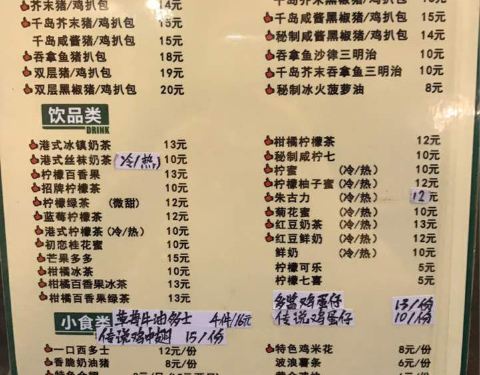 芥末猪/鸡扒包 14元
千岛芥末猪/鸡扒包 15元
千岛咸酱猪/鸡扒包 15元
吞拿鱼猪/鸡扒包 18元
双层猪/鸡扒包 19元
双层黑椒猪/鸡扒包 20元
千岛黑椒猪/鸡扒包 15元
千岛咸酱黑椒猪/鸡扒包 15元
秘制咸酱黑椒猪/鸡扒包 14元
吞拿鱼沙律三明治 10元
千岛芥末吞拿鱼三明治 10元
秘制冰火菠萝油 8元
饮品类
DRINK
港式冰镇奶茶 13元
港式丝袜奶茶 (冷/热) 10元
柠檬百香果 13元
招牌柠檬茶 10元
柠檬绿茶 (微甜) 12元
蓝莓柠檬茶 12元
港式柠檬茶 (冷/热) 10元
初恋桂花蜜 10元
芒果多多 15元
柑橘冰茶 10元
柑橘百香果冰茶 13元
柑橘百香果绿茶 13元
柑橘柠檬茶 12元
秘制咸柠七 10元
柠蜜 (冷/热) 10元
柠檬柚子蜜 (冷/热) 12元
朱古力 (冷/热) 12元
菊花蜜 (冷/热) 10元
红豆奶茶 (冷/热) 13元
红豆鲜奶 (冷/热) 12元
鲜奶 (冷/热) 10元
柠檬可乐 5元
柠檬七喜 5元
多蓝鸡蛋仔 13/份
传说鸡蛋仔 10/份
小食类
草莓牛油多士 4件/16元
传说鸡中翅 15/份
一口西多士 12元/份
香脆奶油猪 8元/份
特色鸡米花 8元/份
波浪薯条 6元/份